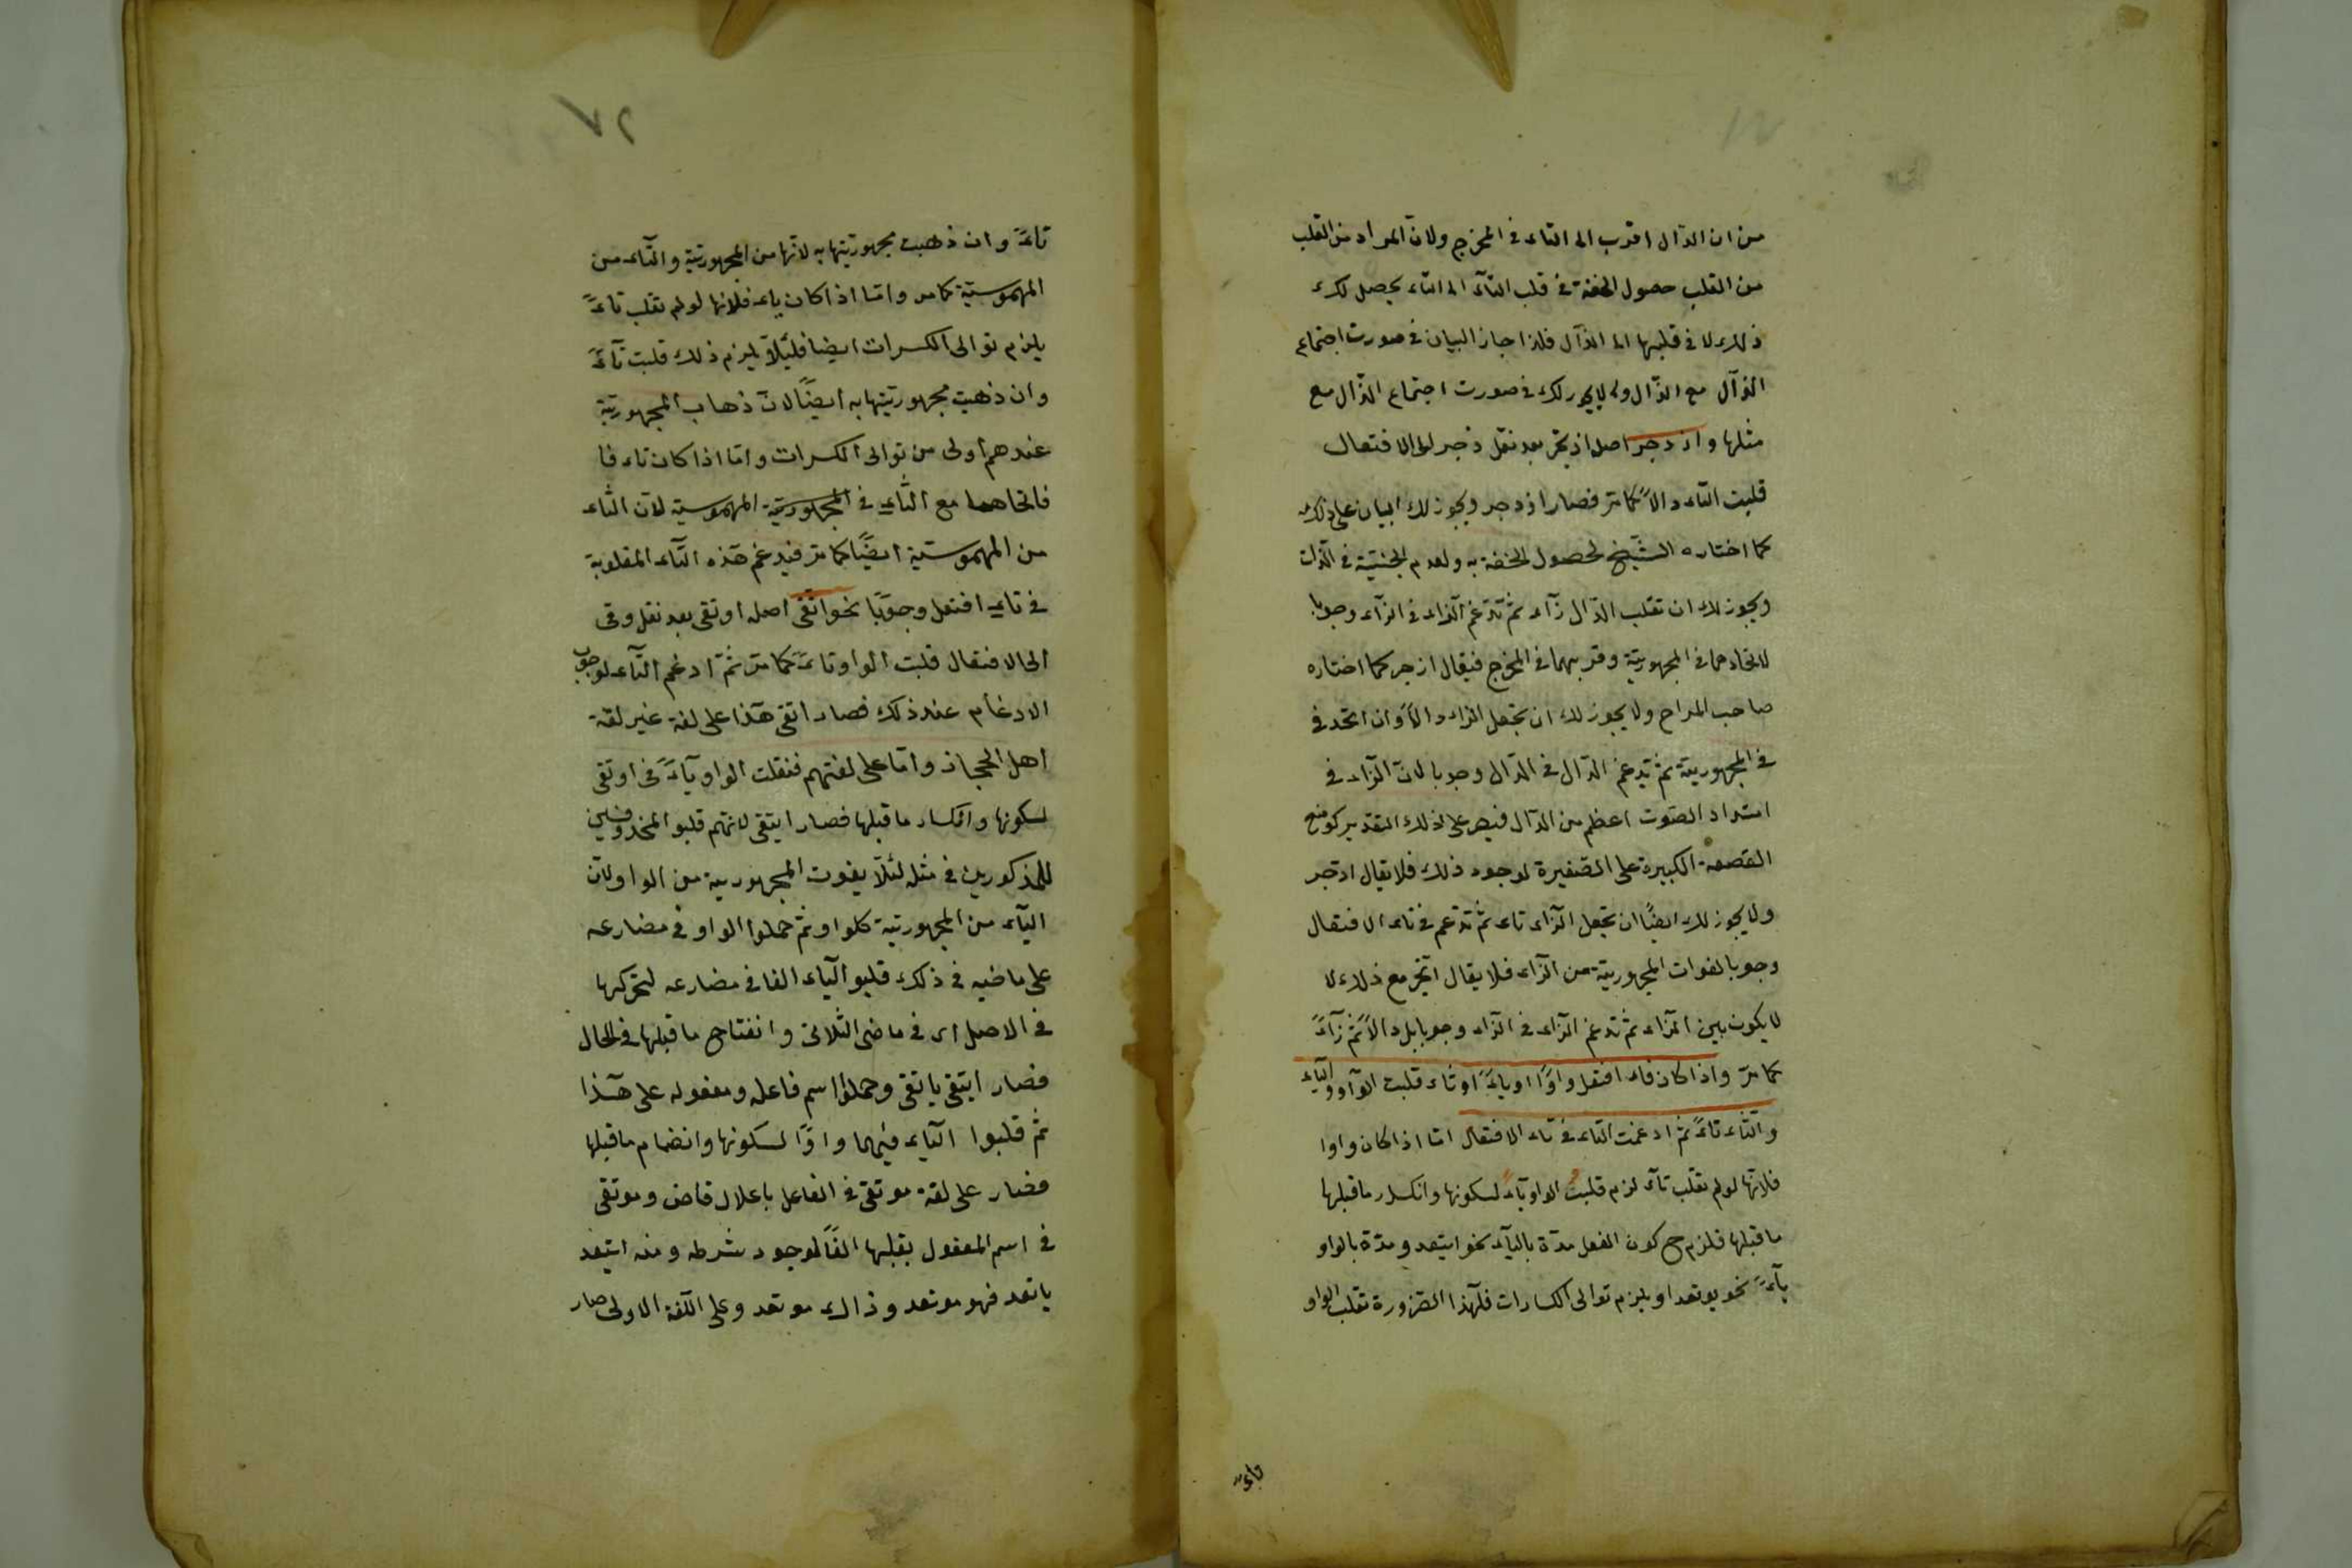 من ان الدّال اقرب الى التاء فى المخرج ولان المراد من القلب
من القلب حصول الخفة فى قلب التّاء الى التاء يحصل لك
فى قلبها الى الدّال فلذا جاز البيان فى صورت اجتماع
الذّال مع الدّال ولا يجوز لك فى صورت اجتماع الدّال مع
مثلها وازدجر اصله ازتجر بعد نقل زجر الى الافتعال
قلبت التاء دالاً كما مرّ فصار ازدجر ويجوز لك البيان على ذلك
كما اختاره الشّيخ لحصول الخفة به ولعدم الجنسيّة فى الذّات
ويجوز لك ان تقلب الدّال زآء ثمّ تدغم الزاء فى الزآء وجوبا
لاتحادهما فى المجهوريّة وقربهما فى المخرج فيقال ازجر كما اختاره
صاحب المراح ولا يجوز لك ان تجعل الزاء دالاً وان اتحد فى
فى المجهوريّة ثمّ تدغم الدّال فى الدّال وجوبا لانّ الزّاء فى
امتداد الصّوت اعظم من الدّال فيصير على ذلك التقدير كوضع
القصعة الكبيرة على الصّغيرة لوجود ذلك فلا يقال ادّجر
ولا يجوز لك ايضًا ان تجعل الزّاء تاء ثمّ تدغم فى تاء الافتعال
وجوبا لفوات المجهوريّة من الزّاء فلا يقال اتّجر مع ذلك لا
لا يكون بين الزّاء ثمّ تدغم الزاء فى الزّاء وجوبا بل دالاً ثمّ زآءً
كما مرّ واذا كان فاء افتعل واوًا او ياءً او ثاء قلبت الواو والياء
والثّاء تاءً ثمّ ادغمت التاء فى تاء الافتعال امّا اذا كان واوا
فلانّها لو لم تقلب تآء لزم قلبت الواو ياءً لسكونها وانكسار ما قبلها
ما قبلها فلزم ح كون الفعل مدّة باليآء نحو ايتعد ومدّة بالواو
نحو يوتعد او يلزم توالى الكسارات فلهذا الضّرورة تقلب الواو
تاءً
تاءً وان ذهبت مجهوريّتها به لانّها من المجهوريّة والتّاء من
المهموسيّة كما مر وامّا اذا كان ياء فلانها لو لم تقلب تاءً
يلزم توالى الكسرات ايضا فلئلّا يلزم ذلك قلبت تآءً
وان ذهبت مجهوريّتها به ايضًا لانّ ذهاب المجهوريّة
عندهم اولى من توالى الكسرات وامّا اذا كان ثاء فا
فاتحاهما مع التّاء فى المجهوريّة المهموسية لانّ الثّاء
من المهموسيّة ايضًا كما مرّ فيدغم هذه التّاء المقلوبة
فى تاء افتعل وجوبًا نحو اتّقى اصله اوتقى بعد نقل وقى
الى الافتعال قلبت الواو تاءً كما مرّ ثمّ ادغم التّاء لوجوب
الادغام عند ذلك فصار اتقى هذا على لغة غير لغة
اهل الحجاز وامّا على لغتهم فنقلت الواو يآءً فى اوتقى
لسكونها وانكسار ما قبلها فصار ايتقى لانّهم قلبو المحذوفين
للمذكورين فى مثله لئلّا يفوت المجهورية من الواو ولانّ
اليآء من المجهوريّة كلواو ثمّ حملوا الواو فى مضارعه
على ماضيه فى ذلك قلبو اليآء الفا فى مضارعه لتحركها
فى الاصل اى فى ماضى الثلاثى وانفتاح ما قبلها فى الحال
فصار ايتقى ياتقى وحملوا اسم فاعله ومفعوله على هذا
ثمّ قلبوا اليّاء فيهما واوًا لسكونها وانضمام ما قبلها
فصار على لغة موتقى فى الفاعل باعلال قاض وموتقى
فى اسم المفعول بقلبها الفًا لوجود شرطه ومنه ايتعد
ياتعد فهو موتعد وذاك موتعد وعلى اللّغة الاولى صار